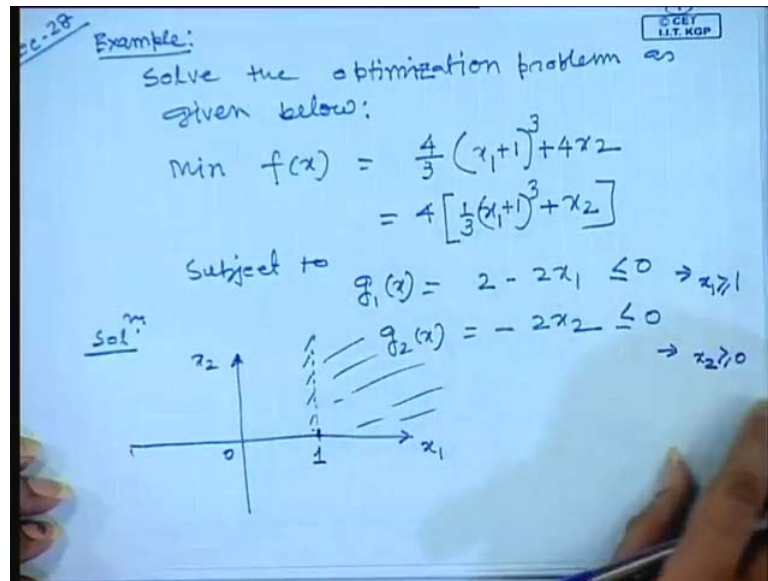 ec-28
© CET
I.I.T. KGP
Example:
Solve the optimization problem as
given below:
Min f(x) = 4/3 (x₁+1)³ + 4x₂
= 4[1/3(x₁+1)³ + x₂]
Subject to
g₁(x) = 2 - 2x₁ ≤ 0 → x₁ ≥ 1
g₂(x) = - 2x₂ ≤ 0
→ x₂ ≥ 0
Solⁿ.
x₂
0
1
x₁